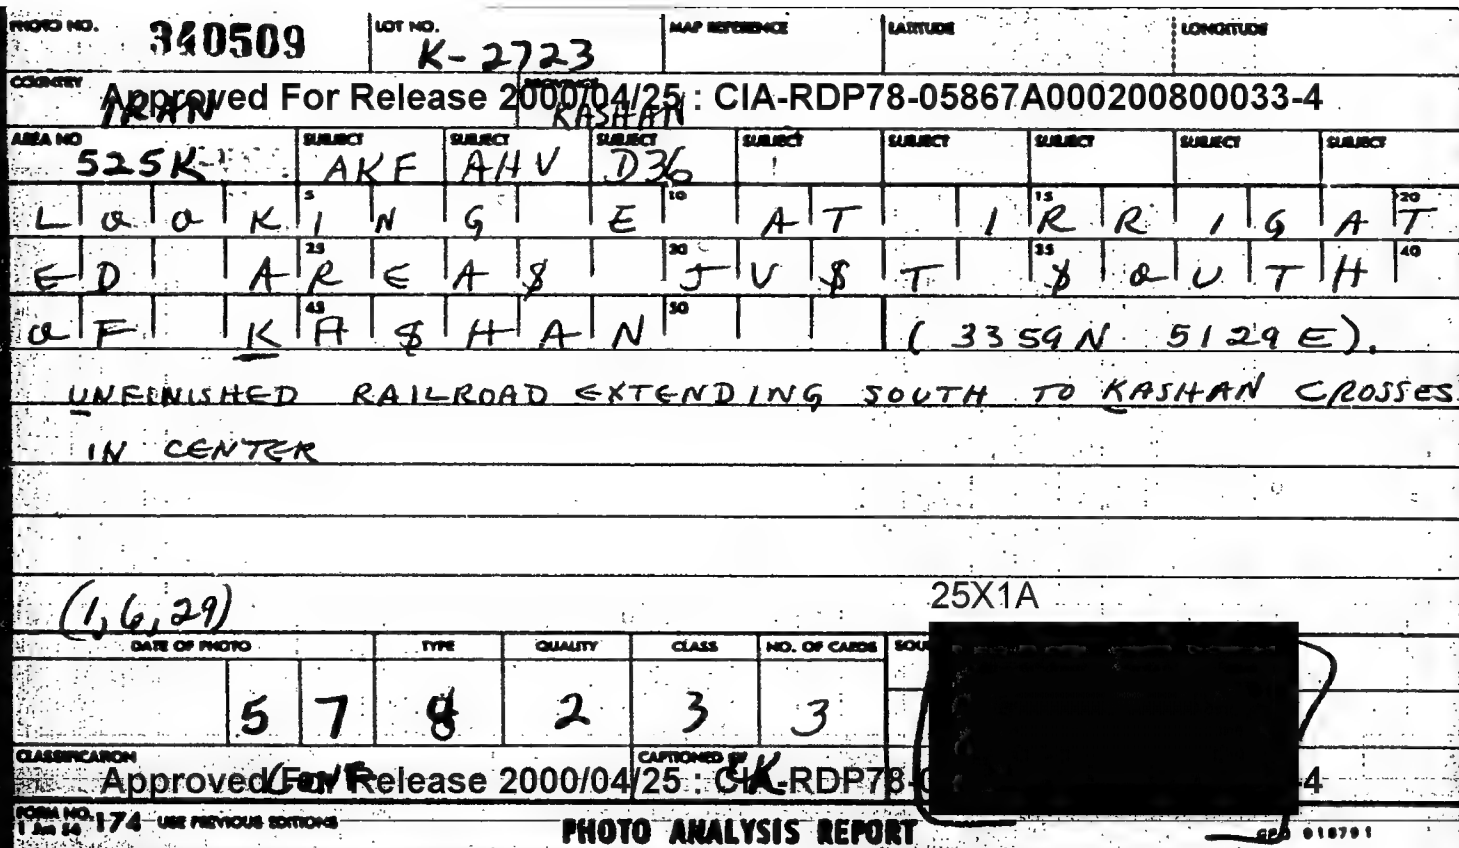 PHOTO NO. 340509 LOT NO. K-2723 MAP REFERENCE LATITUDE LONGITUDE
COUNTRY IRAN PROVINCE KASHAN
Approved For Release 2000/04/25 : CIA-RDP78-05867A000200800033-4
AREA NO 525K SUBJECT AKF SUBJECT AHV SUBJECT D36 SUBJECT SUBJECT SUBJECT SUBJECT SUBJECT
LOOKING E AT IRRIGAT
ED AREAS JUST SOUTH
OF KASHAN (3359N 5129E).
UNFINISHED RAILROAD EXTENDING SOUTH TO KASHAN CROSSES
IN CENTER
(1,6,29)
25X1A
DATE OF PHOTO TYPE QUALITY CLASS NO. OF CARDS
57 8 2 3 3
CLASSIFICATION CONF CAPTIONED BY
Approved For Release 2000/04/25 : CIA-RDP78-0 -4
FORM NO. 174 USE PREVIOUS EDITIONS
1 Jun 54
PHOTO ANALYSIS REPORT
GPO 018701